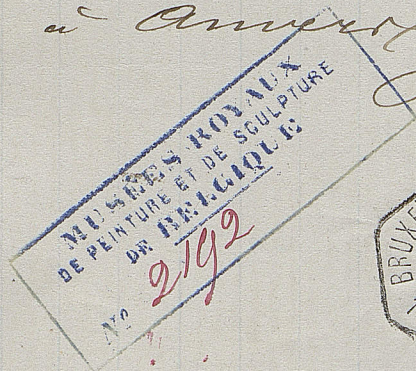 à Anvers
MUSÉES ROYAUX
DE PEINTURE ET DE SCULPTURE
DE BELGIQUE
No 2192
BRUX